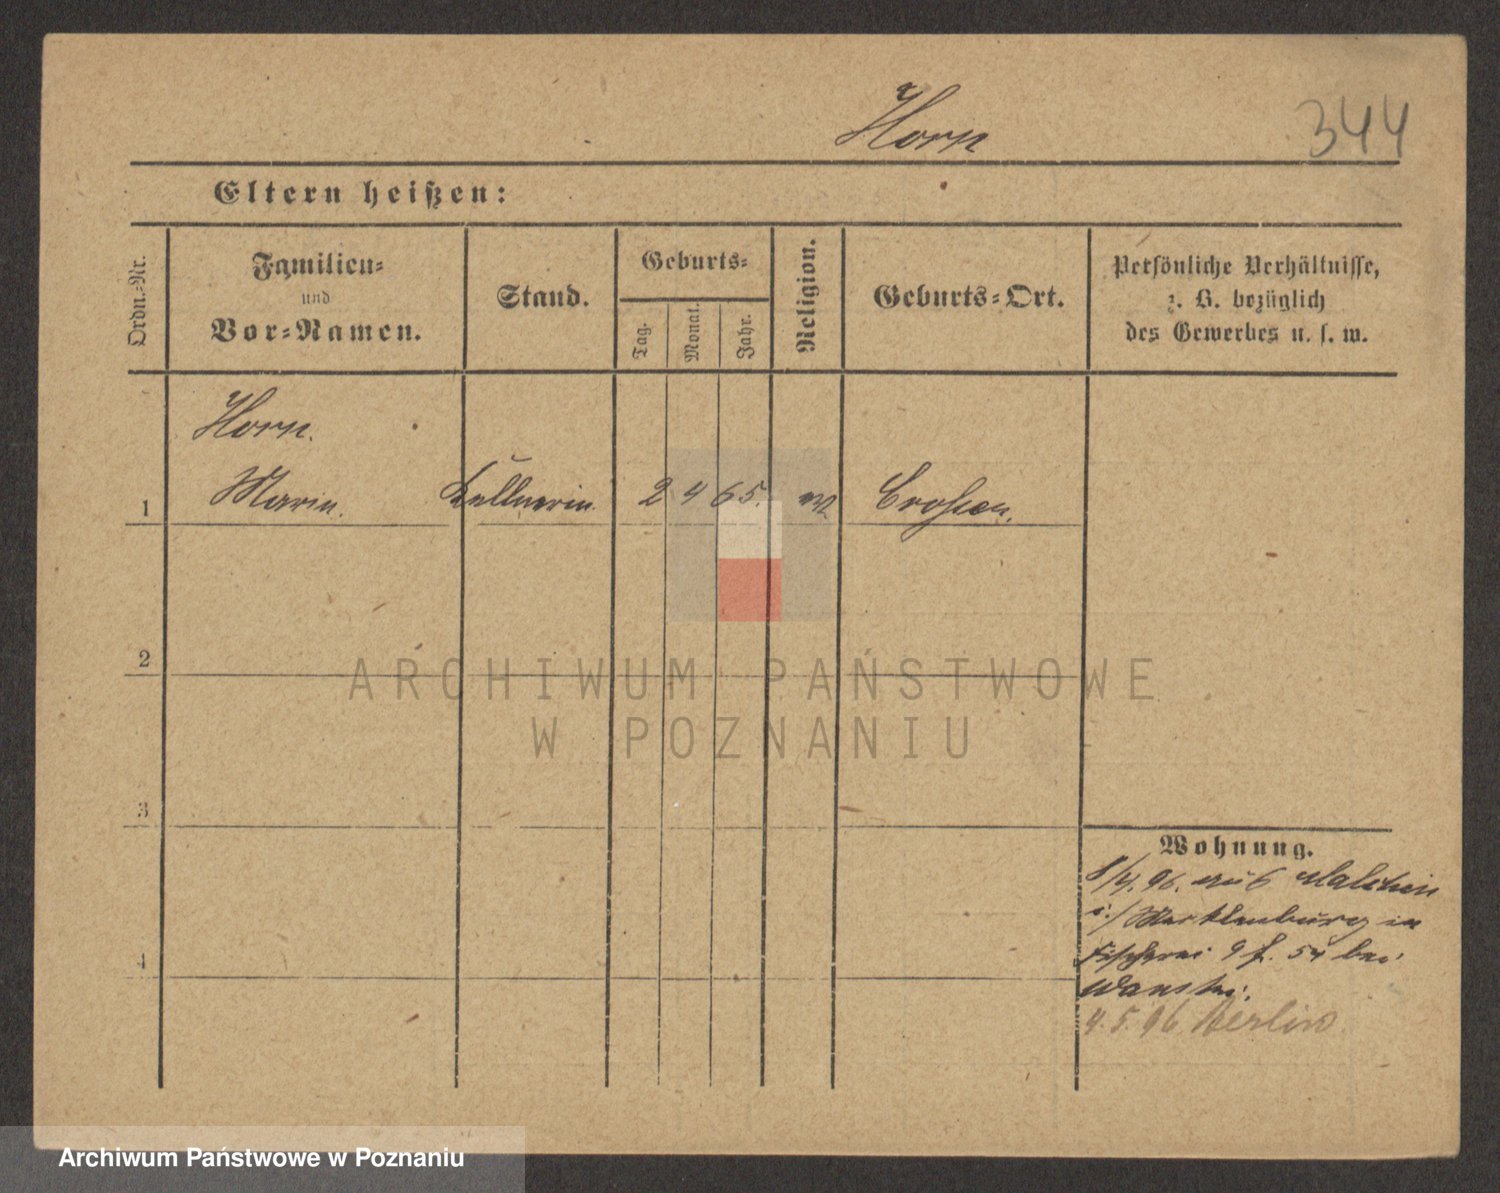 Horn
344
Eltern heißen:
Ordn.-Nr.
Familien-
und
Vor-Namen.
Stand.
Geburts-
Tag.
Monat.
Jahr.
Religion.
Geburts-Ort.
Persönliche Verhältnisse,
z. B. bezüglich
des Gewerbes u. s. w.
Horn.
1 Marie. Kellnerin. 2 4 65. ev Crossen.
2
3
4
Wohnung.
/4. 96. aus Malchin
i./ Mecklenburg in
Fischerei 9 f. 54 bei
4.5.96 Berlin
ARCHIWUM PAŃSTWOWE
W POZNANIU
Archiwum Państwowe w Poznaniu